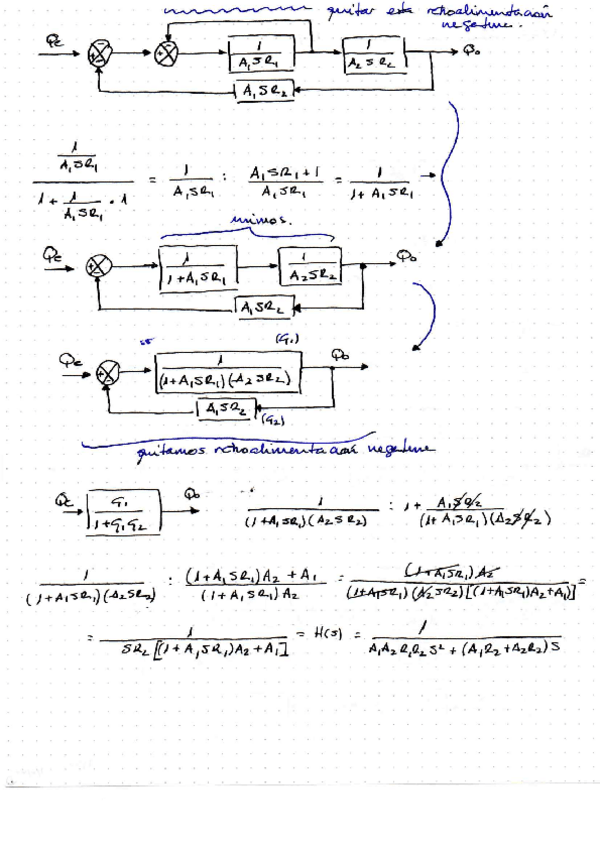 quitar esta retroalimentación
negativa.
Qe 1/(A₁SR₁) 1/(A₂SR₂) Q₀
A₁SR₂
(1/(A₁SR₁))/(1 + 1/(A₁SR₁) · 1) = 1/(A₁SR₁) : (A₁SR₁+1)/(A₁SR₁) = 1/(1+A₁SR₁) →
unimos.
Qe 1/(1+A₁SR₁) 1/(A₂SR₂) Q₀
A₁SR₂
(G₁)
Qe 1/((1+A₁SR₁)(A₂SR₂)) Q₀
A₁SR₂
(G₂)
quitamos retroalimentación negativa
Qe G₁/(1+G₁G₂) Q₀ 1/((1+A₁SR₁)(A₂SR₂)) : 1+ A₁SR₂/((1+A₁SR₁)(A₂SR₂))
1/((1+A₁SR₁)(A₂SR₂)) : ((1+A₁SR₁)A₂+A₁)/((1+A₁SR₁)A₂) = ((1+A₁SR₁)A₂)/((1+A₁SR₁)(A₂SR₂)[(1+A₁SR₁)A₂+A₁)] =
= 1/(SR₂[(1+A₁SR₁)A₂+A₁]) = H(s) = 1/(A₁A₂R₁R₂S²+(A₁R₂+A₂R₂)S)